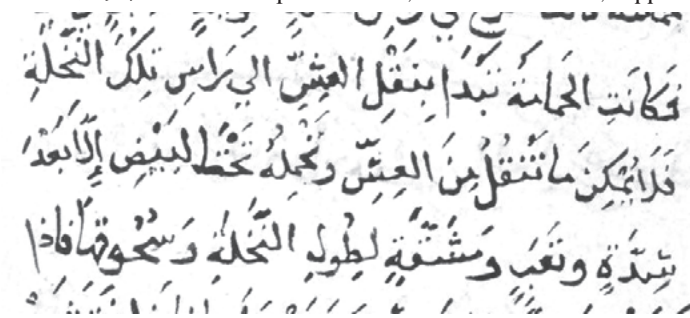 فَكَانَتِ الحَمَامَةُ تَبْدَا بِنَقْلِ العِشِّ الي رَاسِ تِلكَ النَّخْلَةِ
فَلَا يُمْكِنُ مَا تَنْقُلُ مِنَ العِشِّ وتَجْعَلهُ تَحْتَ البَيْضِ إِلَّا بَعْدَ
شِدَّةٍ وتَعَبٍ وَمَشَقَّةٍ لِطُولِ النَّخْلَةِ وَسُحُوقِهَا فَاذا